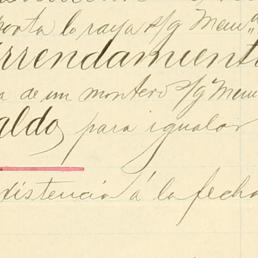 porta la raya s/g Mem^a
rrendamiento
a de un montero s/g Mem
aldo para igualar
xistencia á la fecha